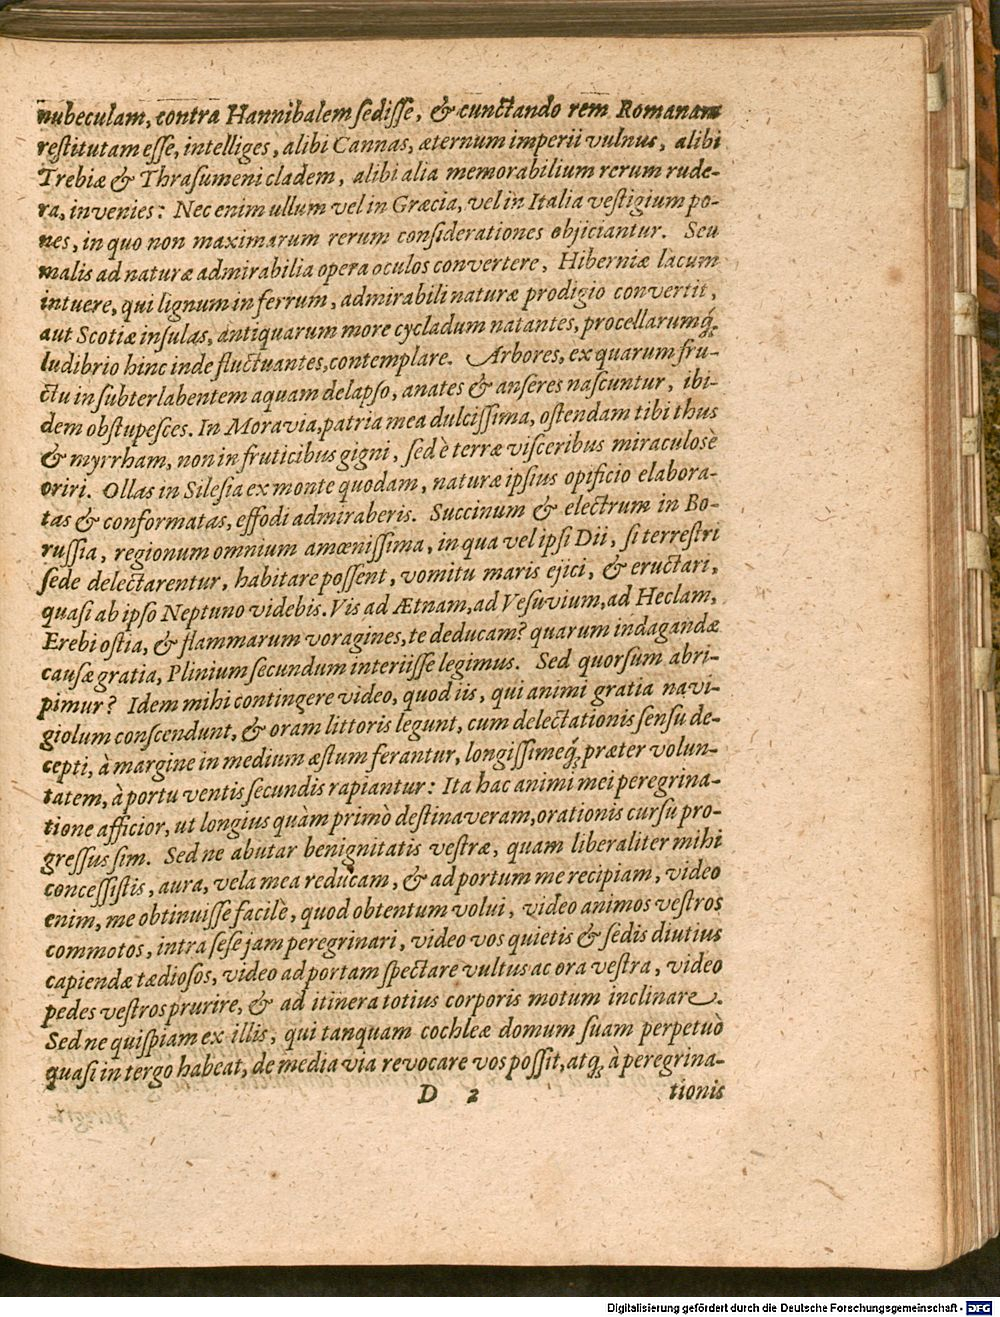 nubeculam, contra Hannibalem sedisse, & cunctando rem Romanam
restitutam esse, intelliges, alibi Cannas, æternum imperii vulnus, alibi
Trebiæ & Thrasumeni cladem, alibi alia memorabilium rerum rude-
ra, invenies: Nec enim ullum vel in Græcia, vel in Italia vestigium po-
nes, in quo non maximarum rerum considerationes objiciantur. Seu
malis ad naturæ admirabilia opera oculos convertere, Hiberniæ lacum
intuere, qui lignum in ferrum, admirabili naturæ prodigio convertit,
aut Scotiæ insulas, antiquarum more cycladum natantes, procellarumq́;
ludibrio hinc inde fluctuantes, contemplare. Arbores, ex quarum fru-
ctu in subterlabentem aquam delapso, anates & anseres nascuntur, ibi-
dem obstupesces. In Moravia, patria mea dulcissima, ostendam tibi thus
& myrrham, non in fruticibus gigni, sed è terræ visceribus miraculosè
oriri. Ollas in Silesia ex monte quodam, naturæ ipsius opificio elabora-
tas & conformatas, effodi admiraberis. Succinum & electrum in Bo-
russia, regionum omnium amœnissima, in qua vel ipsi Dii, si terrestri
sede delectarentur, habitare possent, vomitu maris ejici, & eructari,
quasi ab ipso Neptuno videbis. Vis ad Ætnam, ad Vesuvium, ad Heclam,
Erebi ostia, & flammarum voragines, te deducam? quarum indagandæ
causæ gratia, Plinium secundum interiisse legimus. Sed quorsum abri-
pimur? Idem mihi contingere video, quod iis, qui animi gratia navi-
giolum conscendunt, & oram littoris legunt, cum delectationis sensu de-
cepti, à margine in medium æstum ferantur, longissimeq́; præter volun-
tatem, à portu ventis secundis rapiantur: Ita hac animi mei peregrina-
tione afficior, ut longius quàm primò destinaveram, orationis cursu pro-
gressus sim. Sed ne abutar benignitatis vestræ, quam liberaliter mihi
concessistis, aura, vela mea reducam, & ad portum me recipiam, video
enim, me obtinuisse facilè, quod obtentum volui, video animos vestros
commotos, intra sese jam peregrinari, video vos quietis & sedis diutius
capiendæ tædiosos, video ad portam spectare vultus ac ora vestra, video
pedes vestros prurire, & ad itinera totius corporis motum inclinare.
Sed ne quispiam ex illis, qui tanquam cochleæ domum suam perpetuò
quasi in tergo habeat, de media via revocare vos possit, atq; à peregrina-
D 2 tionis
Digitalisierung gefördert durch die Deutsche Forschungsgemeinschaft - DFG